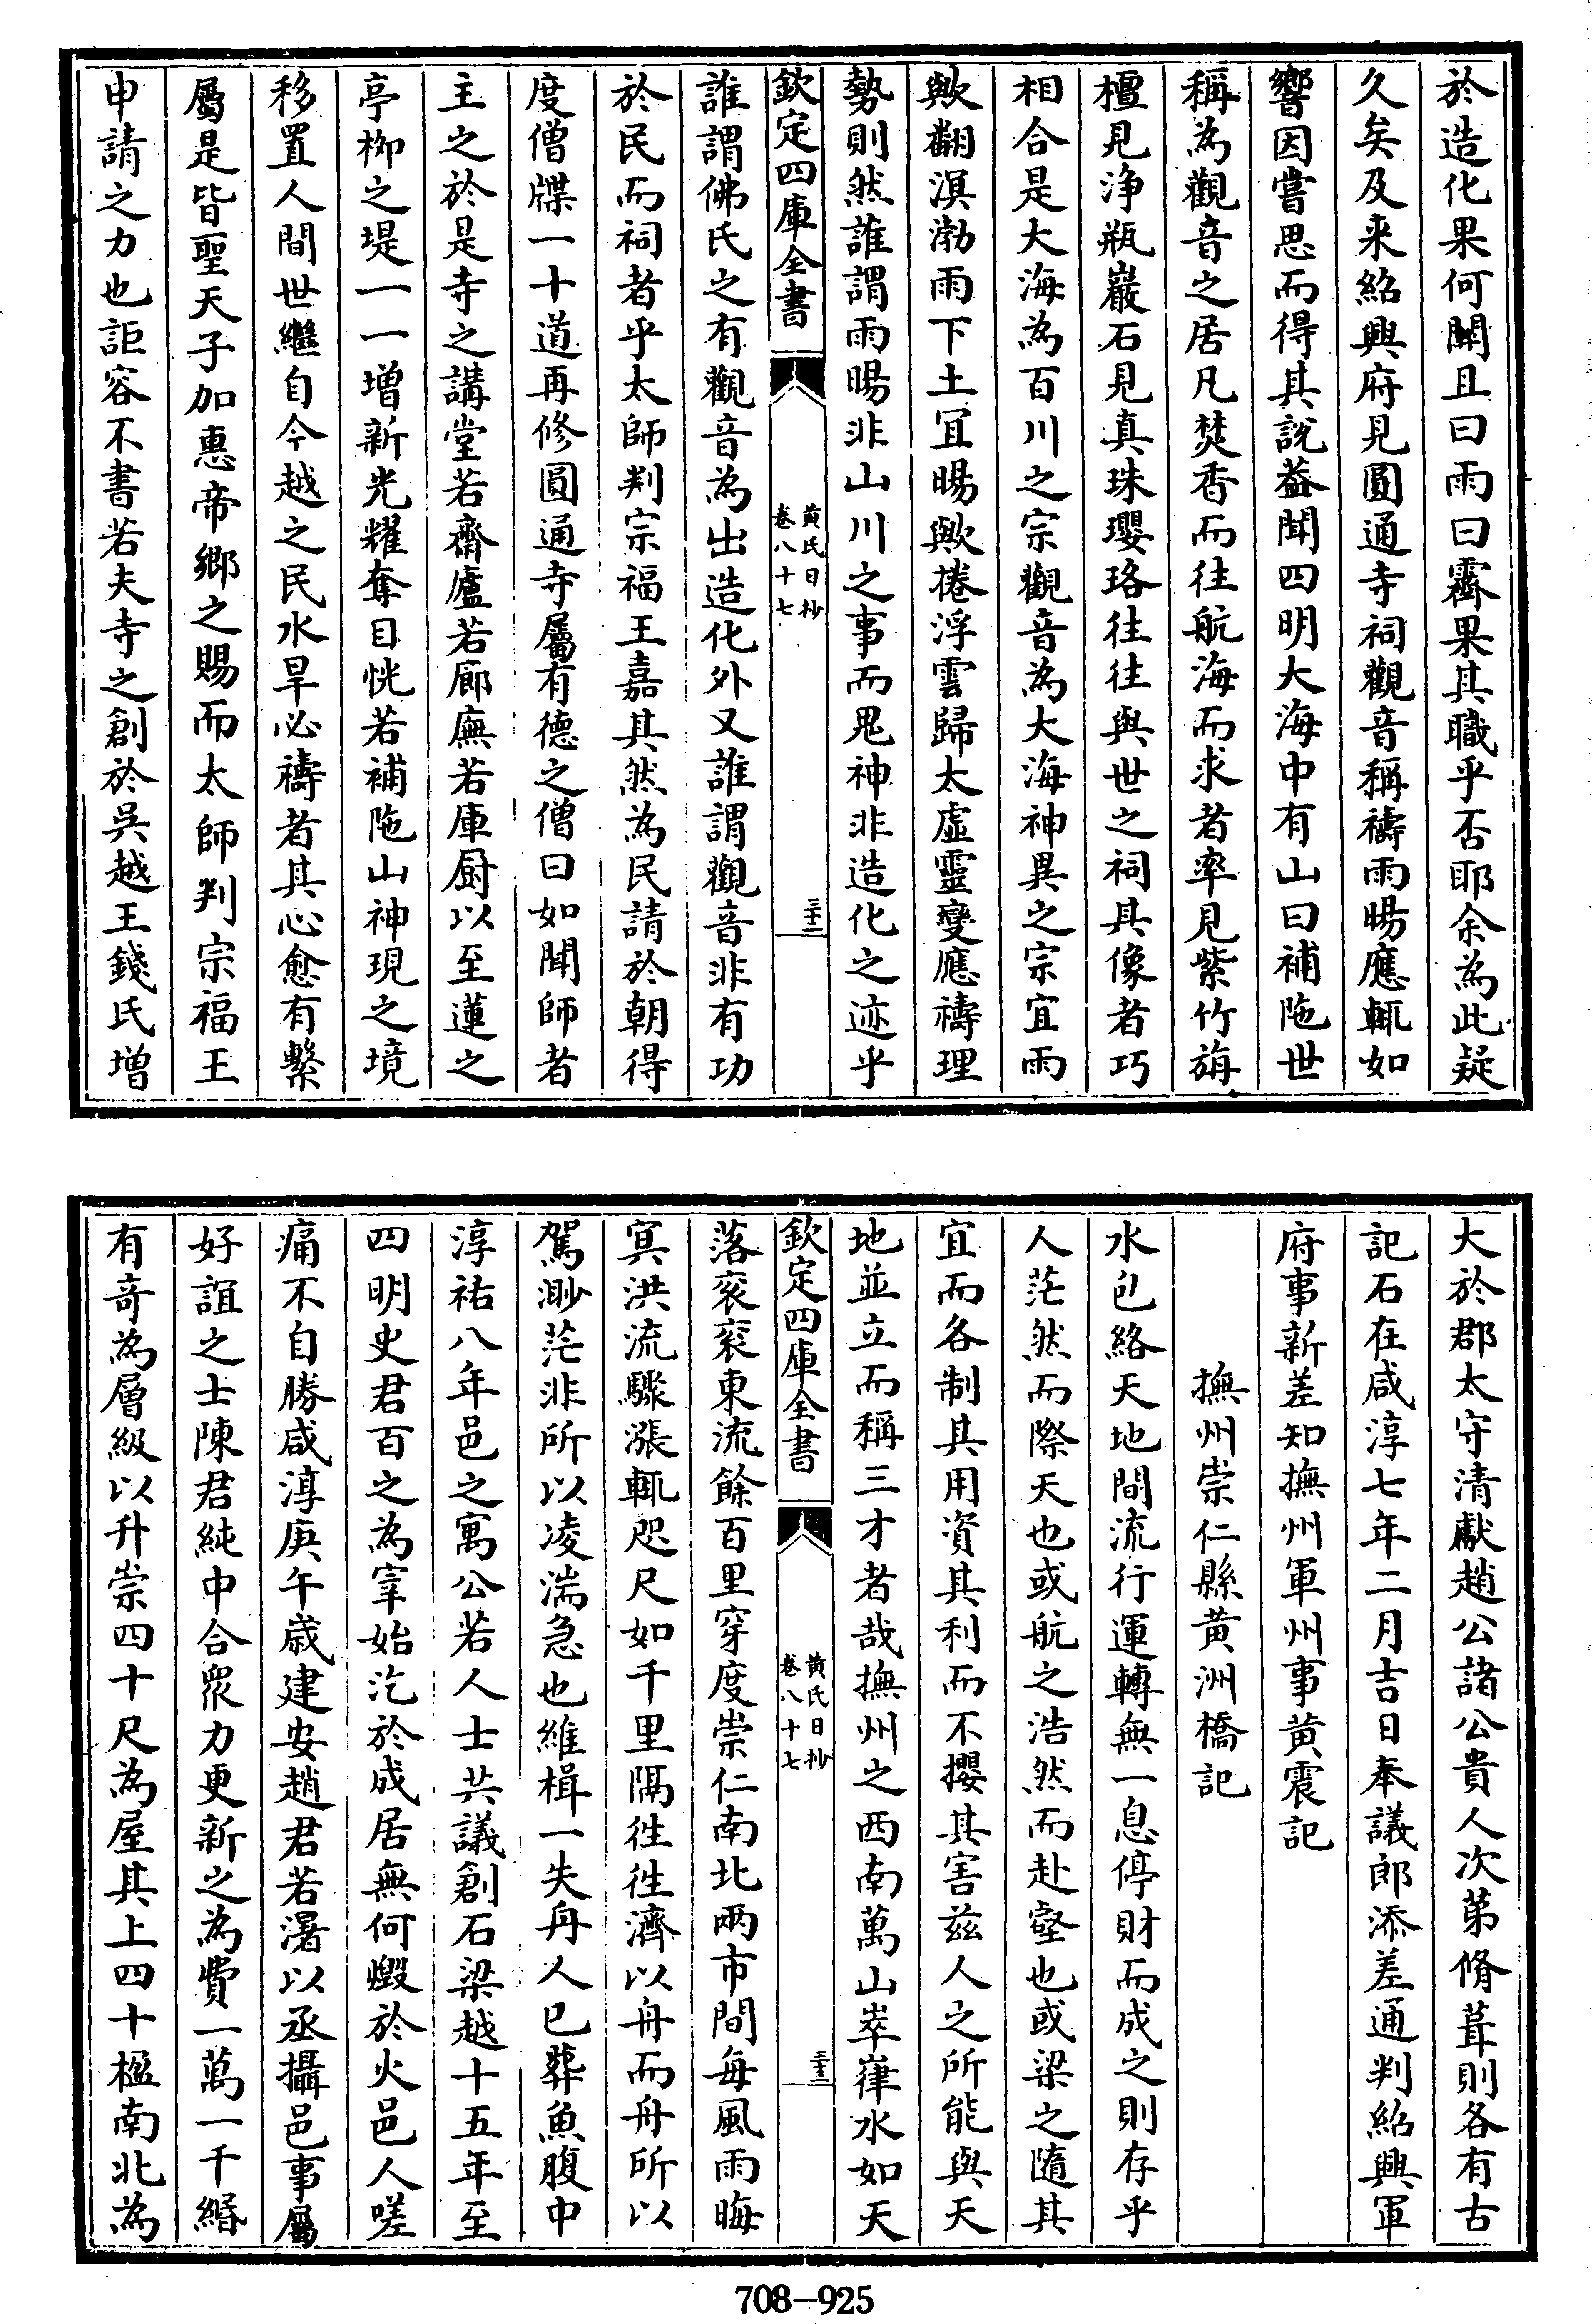 於造化果何關且曰雨曰霽果其職乎否耶余為此疑
久矣及来紹興府見圓通寺祠觀音稱禱雨暘應輒如
響因嘗思而得其說葢聞四明大海中有山曰補陁世
稱為觀音之居凡焚香而往航海而求者率見紫竹旃
檀見浄瓶巖石見真珠瓔珞往往與世之祠具像者巧
相合是大海為百川之宗觀音為大海神異之宗宜雨
歟翻溟渤雨下土宜暘歟捲浮雲歸太虚靈變應禱理
勢則然誰謂雨暘非山川之事而鬼神非造化之迹乎
欽定四庫全書
黄氏日抄
卷八十七
三十二
誰謂佛氏之有觀音為出造化外又誰謂觀音非有功
於民而祠者乎太師判宗福王嘉其然為民請於朝得
度僧牒一十道再修圓通寺屬有德之僧曰如聞師者
主之於是寺之講堂若齋廬若廊廡若庫厨以至蓮之
亭栁之堤一一增新光耀奪目恍若補陁山神現之境
移置人間世繼自今越之民水旱必禱者其心愈有繫
屬是皆聖天子加惠帝鄉之賜而太師判宗福王
申請之力也詎容不書若夫寺之創於吳越王錢氏增
大於郡太守清獻趙公諸公貴人次第脩葺則各有古
記石在咸淳七年二月吉日奉議郎添差通判紹興軍
府事新差知撫州軍州事黄震記
撫州崇仁縣黄洲橋記
水包絡天地間流行運轉無一息停財而成之則存乎
人茫然而際天也或航之浩然而赴壑也或梁之隨其
宜而各制其用資其利而不攖其害兹人之所能與天
地並立而稱三才者哉撫州之西南萬山崒嵂水如天
欽定四庫全書
黄氏日抄
卷八十七
三十三
落衮衮東流餘百里穿度崇仁南北兩市間每風雨晦
㝠洪流驟漲輒咫尺如千里隔徃徃濟以舟而舟所以
駕渺茫非所以凌湍急也維楫一失舟人已葬魚腹中
淳祐八年邑之寓公若人士共議創石梁越十五年至
四明史君百之為宰始汔於成居無何燬於火邑人嗟
痛不自勝咸淳庚午歳建安趙君若濖以丞攝邑事屬
好誼之士陳君純中合衆力更新之為費一萬一千緡
有竒為層級以升崇四十尺為屋其上四十楹南北為
708—925